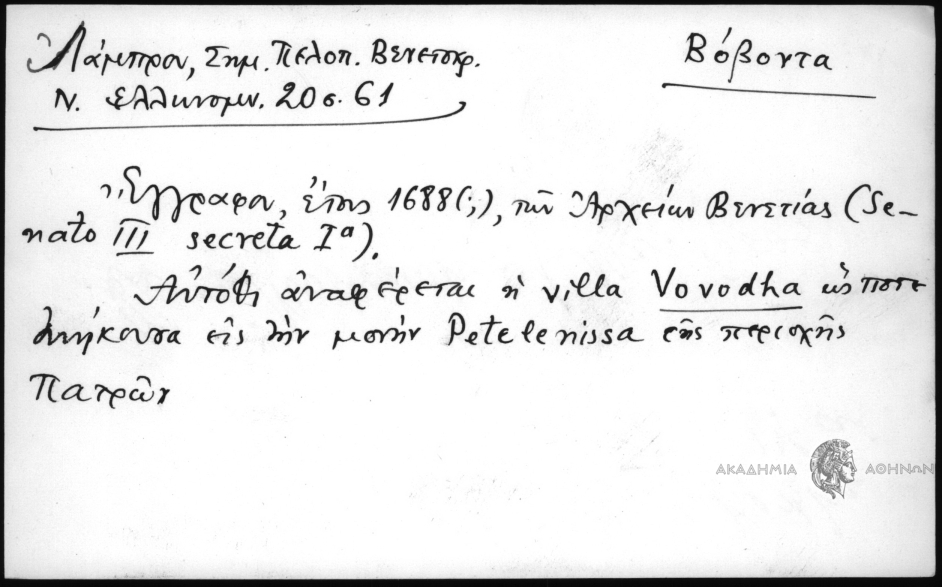 Λάμπρου, Σημ. Πελοπ. Βενετοκρ.
Βόβοντα
Ν. Ελληνομν. 20 σ. 61
Ἔγγραφον, ἔτους 1688(;), τῶν Ἀρχείων Βενετίας (Se-
nato III secreta Iª).
Αὐτόθι ἀναφέρεται ἡ villa Vovodha ὥς ποτε
ἀνήκουσα εἰς τὴν μονὴν Petelenissa τῆς περιοχῆς
Πατρῶν
ΑΚΑΔΗΜΙΑ ΑΘΗΝΩΝ